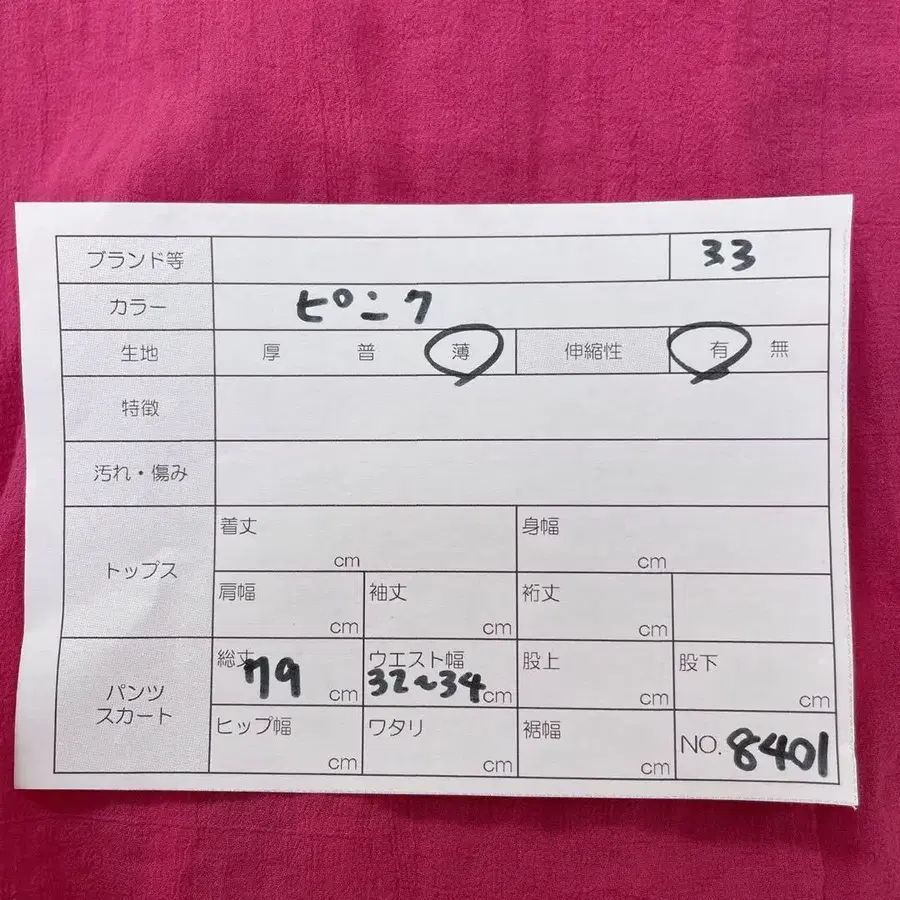 ブランド等 33
カラー ピンク
生地 厚 普 薄 伸縮性 有 無
特徴
汚れ・傷み
トップス
着丈 cm 身幅 cm
肩幅 cm 袖丈 cm 裄丈 cm
パンツ
スカート
総丈 79 cm ウエスト幅 32~34 cm 股上 cm 股下 cm
ヒップ幅 cm ワタリ cm 裾幅 cm NO. 8401